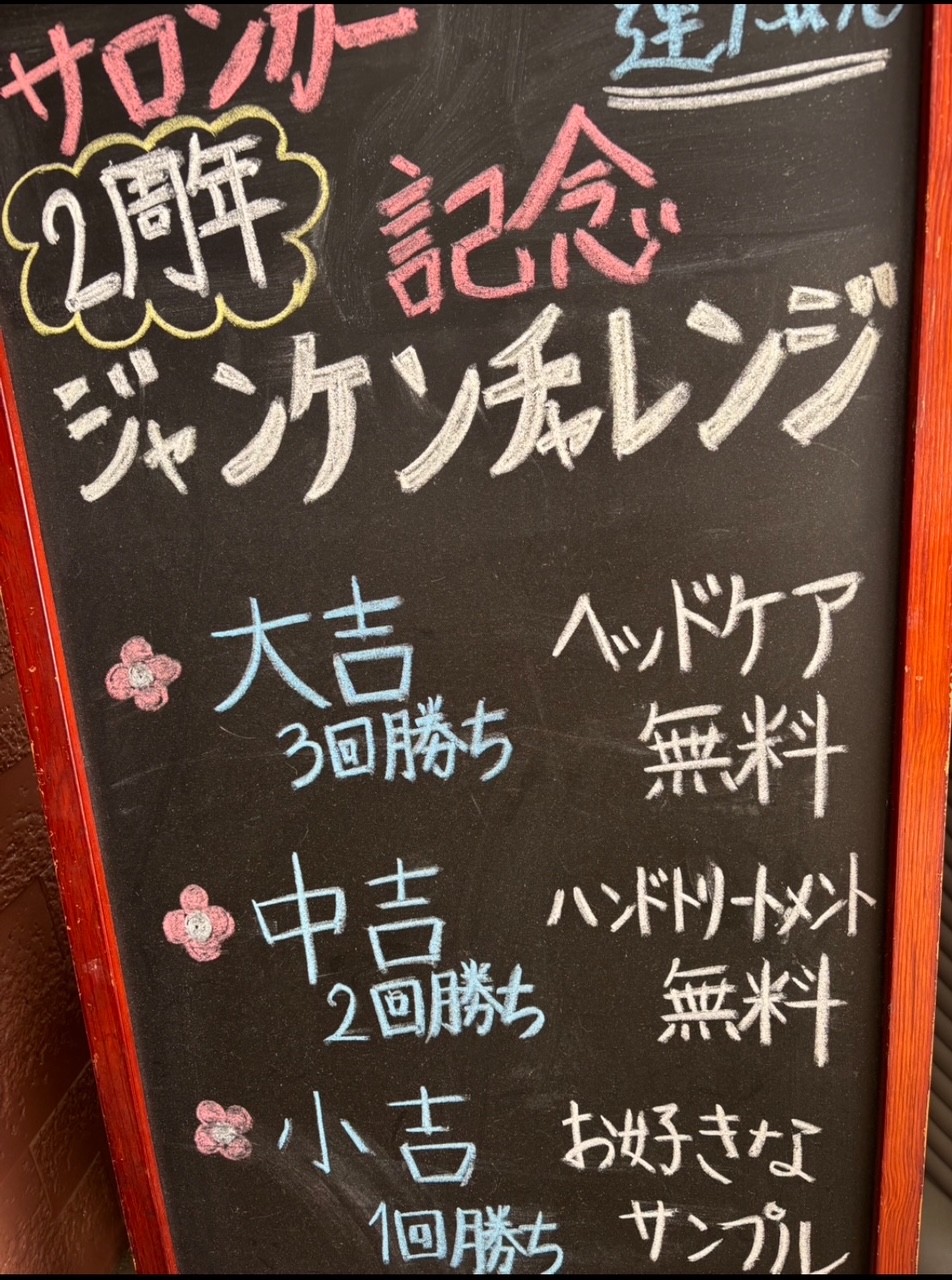 サロンカー
2周年
記念
ジャンケンチャレンジ
大吉 ヘッドケア
3回勝ち 無料
中吉 ハンドトリートメント
2回勝ち 無料
小吉 お好きな
1回勝ち サンプル